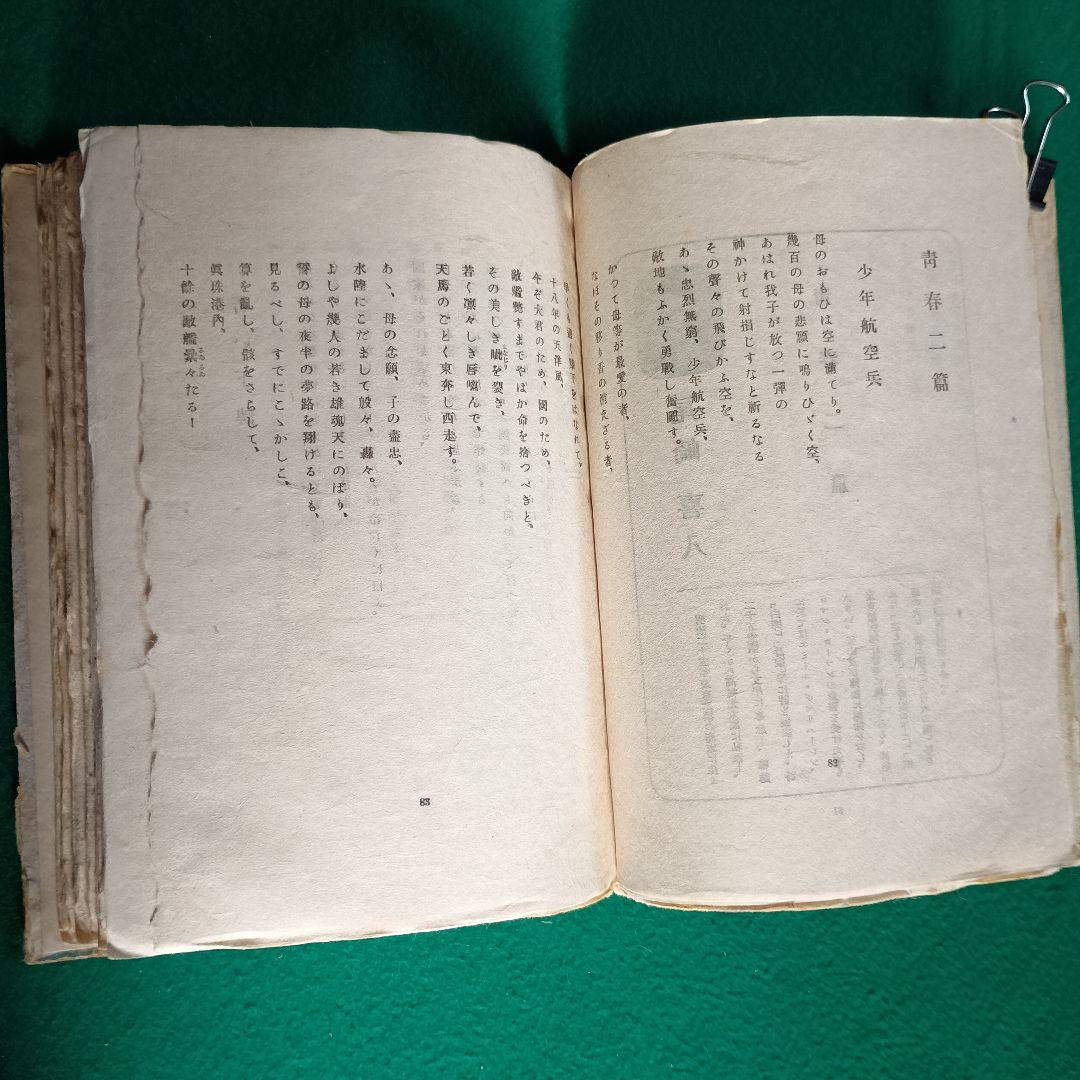 青春二篇
少年航空兵
母のおもひは空に滿てり。
幾百の母の悲願に鳴りひゞく空、
あはれ我子が放つ一彈の
神かけて射損じすなと祈るなる
その聲々の飛びかふ空を、
あゝ忠烈無窮、少年航空兵、
敵地もふかく勇戰し奮鬪す。
かつて母等が最愛の者、
なほその移り香の消えざる者、
82
十八年の天津風、
今ぞ大君のため、國のため、
敵艦斃すまでやはか命を捨つべきと、
その美しき眦を裂き、
まなじり
若く凛々しき唇嚙んで、
天馬のごとく東奔し西走す。
あゝ、母の念願、子の盡忠、
水陸にこだまして殷々、轟々。
よしや幾人の若き雄魂天にのぼり、
誓の母の夜半の夢路を翔けるとも、
見るべし、すでにこゝかしこ、
算を亂し、骸をさらして、
眞珠港內、
十餘の敵艦纍々たる！
るゐるゐ
83